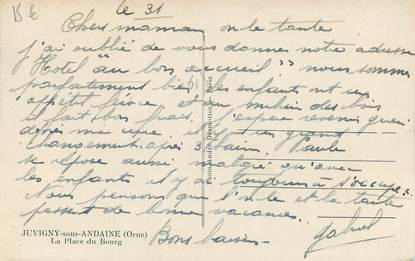 15 €
le 31
Chers maman on le tante
j'ai oublié de vous donner notre adresse
Hotel "au bon accueil" nous sommes
parfaitement bien les enfants ont un
appétit féroce et au milieu des bois
il fait bon frais. j'espère revenir
un grand
changement après 3 bains. Paule
se repose aussi malgré qu'avec
les enfants il y a toujours à s'occuper
Nous pensons que l'oncle et la tante
passent de bonne vacances.
Bons baisers
JUVIGNY-sous-ANDAINE (Orne)
La Place du Bourg